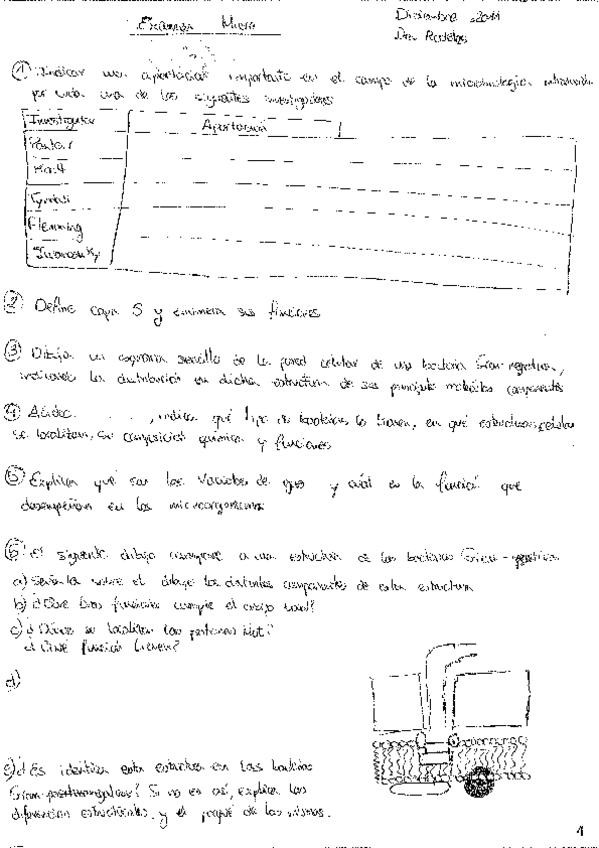 Examen Micro
Diciembre 2011
Dra. Rodelas
① Indicar una aportación importante en el campo de la microbiología introducida
por cada uno de los siguientes investigadores
Investigador
Aportación
Pasteur
Koch
Tyndall
Flemming
Iwanowsky
② Define capa S y enumera sus funciones
③ Dibuja un esquema sencillo de la pared celular de una bacteria Gram-negativa,
indicando la distribución en dicha estructura de sus principales moléculas componentes
④ Ácidos , indica qué tipo de bacterias lo tienen, en qué estructuras celular
se localizan, su composición química y funciones
⑤ Explica qué son las vacuolas de gas y cuál es la función que
desempeñan en los microorganismos
⑥ El siguiente dibujo corresponde a una estructura de las bacterias Gram-negativa
a) Señala sobre el dibujo los distintos componentes de esta estructura
b) ¿Que función cumple el cuerpo basal?
c) ¿Dónde se localizan las proteinas Mot?
¿Qué función tienen?
d)
e) ¿Es idéntica esta estructura en las bacterias
Gram-? Si no es así, explica las
diferencias estructurales, y el porqué de las mismas.
4